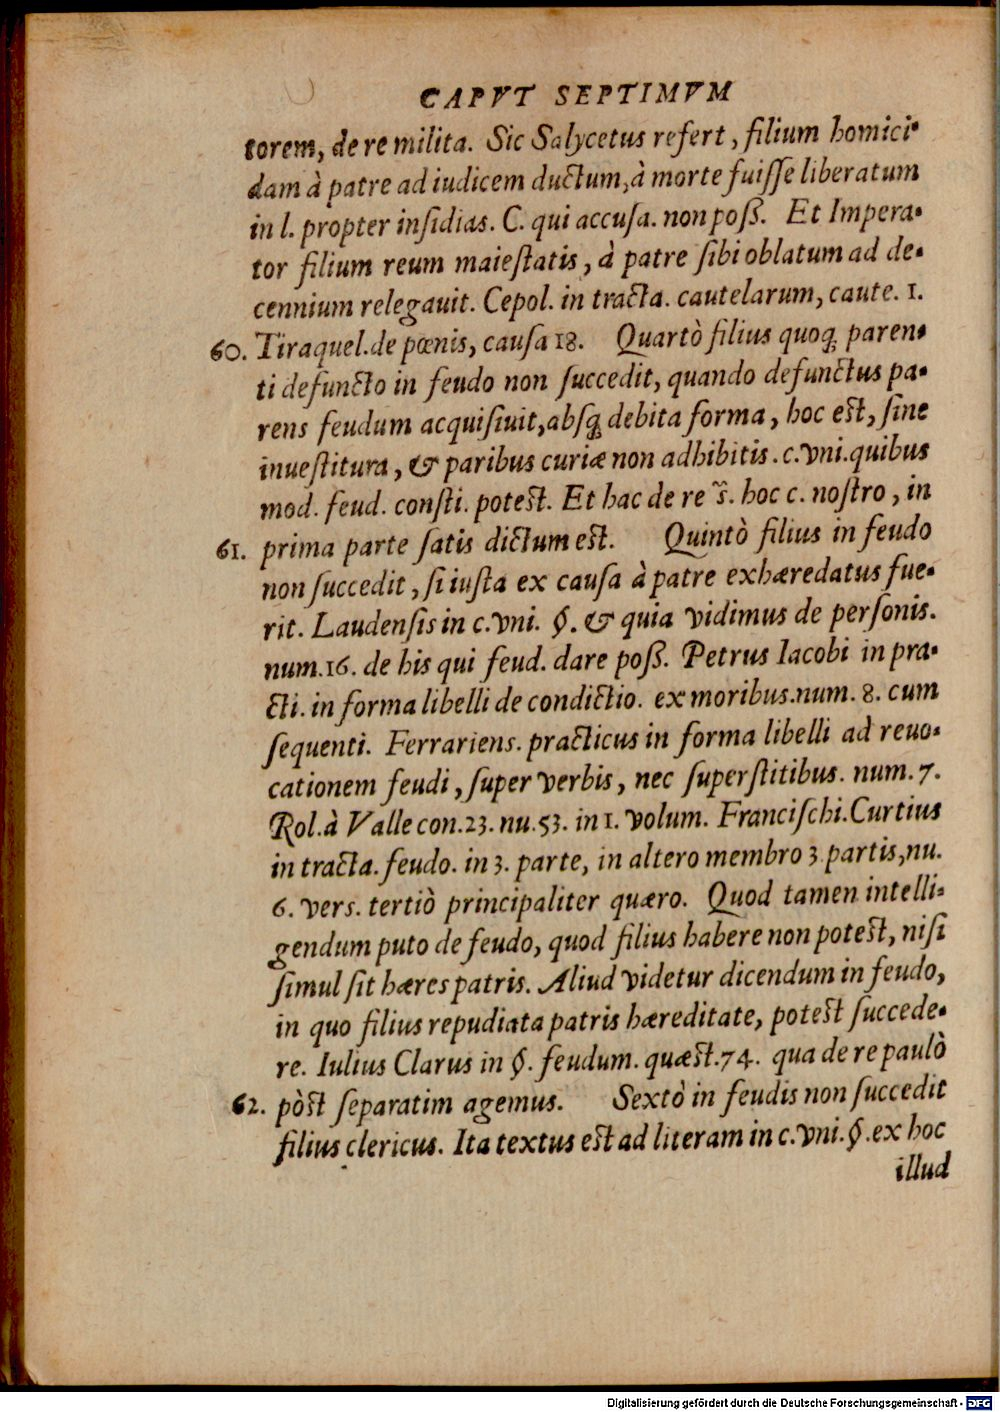 CAPVT SEPTIMVM
torem, de re milita. Sic Salycetus refert, filium homici-
dam à patre ad iudicem ductum, à morte fuiſſe liberatum
in l. propter inſidias. C. qui accuſa. non poß. Et Impera-
tor filium reum maieſtatis, à patre ſibi oblatum ad de-
cennium relegauit. Cepol. in tracta. cautelarum, caute. 1.
60. Tiraquel. de pœnis, cauſa 18. Quartò filius quoq; paren-
ti defuncto in feudo non ſuccedit, quando defunctus pa-
rens feudum acquiſiuit, abſq; debita forma, hoc eſt, ſine
inueſtitura, & paribus curiæ non adhibitis. c. vni. quibus
mod. feud. conſti. poteſt. Et hac de re s̃. hoc c. noſtro, in
61. prima parte ſatis dictum eſt. Quintò filius in feudo
non ſuccedit, ſi iuſta ex cauſa à patre exhæredatus fue-
rit. Laudenſis in c. vni. §. & quia vidimus de perſonis.
num. 16. de his qui feud. dare poß. Petrus Iacobi in pra-
cti. in forma libelli de condictio. ex moribus. num. 8. cum
ſequenti. Ferrariens. practicus in forma libelli ad reuo-
cationem feudi, ſuper verbis, nec ſuperſtitibus. num. 7.
Rol. à Valle con. 23. nu. 53. in 1. volum. Franciſchi. Curtius
in tracta. feudo. in 3. parte, in altero membro 3 partis, nu.
6. verſ. tertiò principaliter quæro. Quod tamen intelli-
gendum puto de feudo, quod filius habere non poteſt, niſi
ſimul ſit hæres patris. Aliud videtur dicendum in feudo,
in quo filius repudiata patris hæreditate, poteſt ſuccede-
re. Iulius Clarus in §. feudum. quæſt. 74. qua de re paulò
62. pòſt ſeparatim agemus. Sextò in feudis non ſuccedit
filius clericus. Ita textus eſt ad literam in c. vni. §. ex hoc
illud
Digitalisierung gefördert durch die Deutsche Forschungsgemeinschaft - DFG